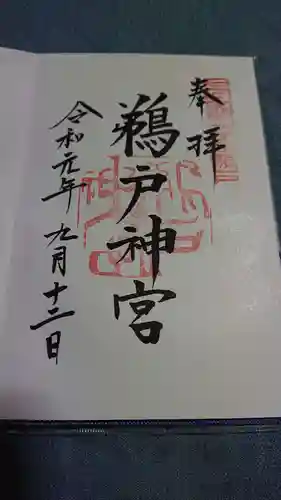 奉拝
鵜戸神宮
令和元年 九月十二日